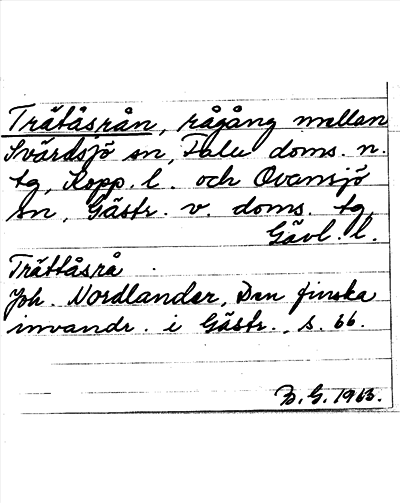 Trätåsrån, rågång mellan
Svärdsjö sn, Falu doms. n.
tg, Kopp. l. och Ovansjö
sn, Gästr. v. doms. tg,
Gävl. l.
Trättåsrå
Joh. Nordlander, Den finska
invandr. i Gästr., s. 66.
B.G. 1963.